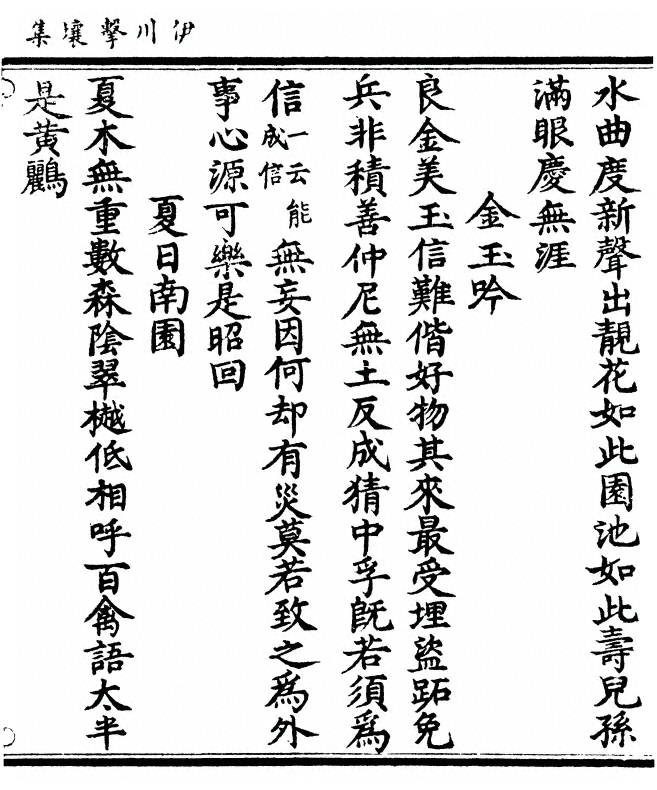 伊川擊壤集
水曲度新聲出靚花如此園池如此壽兒孫
滿眼慶無涯
金玉吟
良金美玉信難偕好物其來最受埋盜跖免
兵非積善仲尼無土反成猜中孚旣若須爲
信一云能成信無妄因何却有災莫若致之爲外
事心源可樂是昭回
夏日南園
夏木無重數森陰翠樾低相呼百禽語太半
是黃鸝